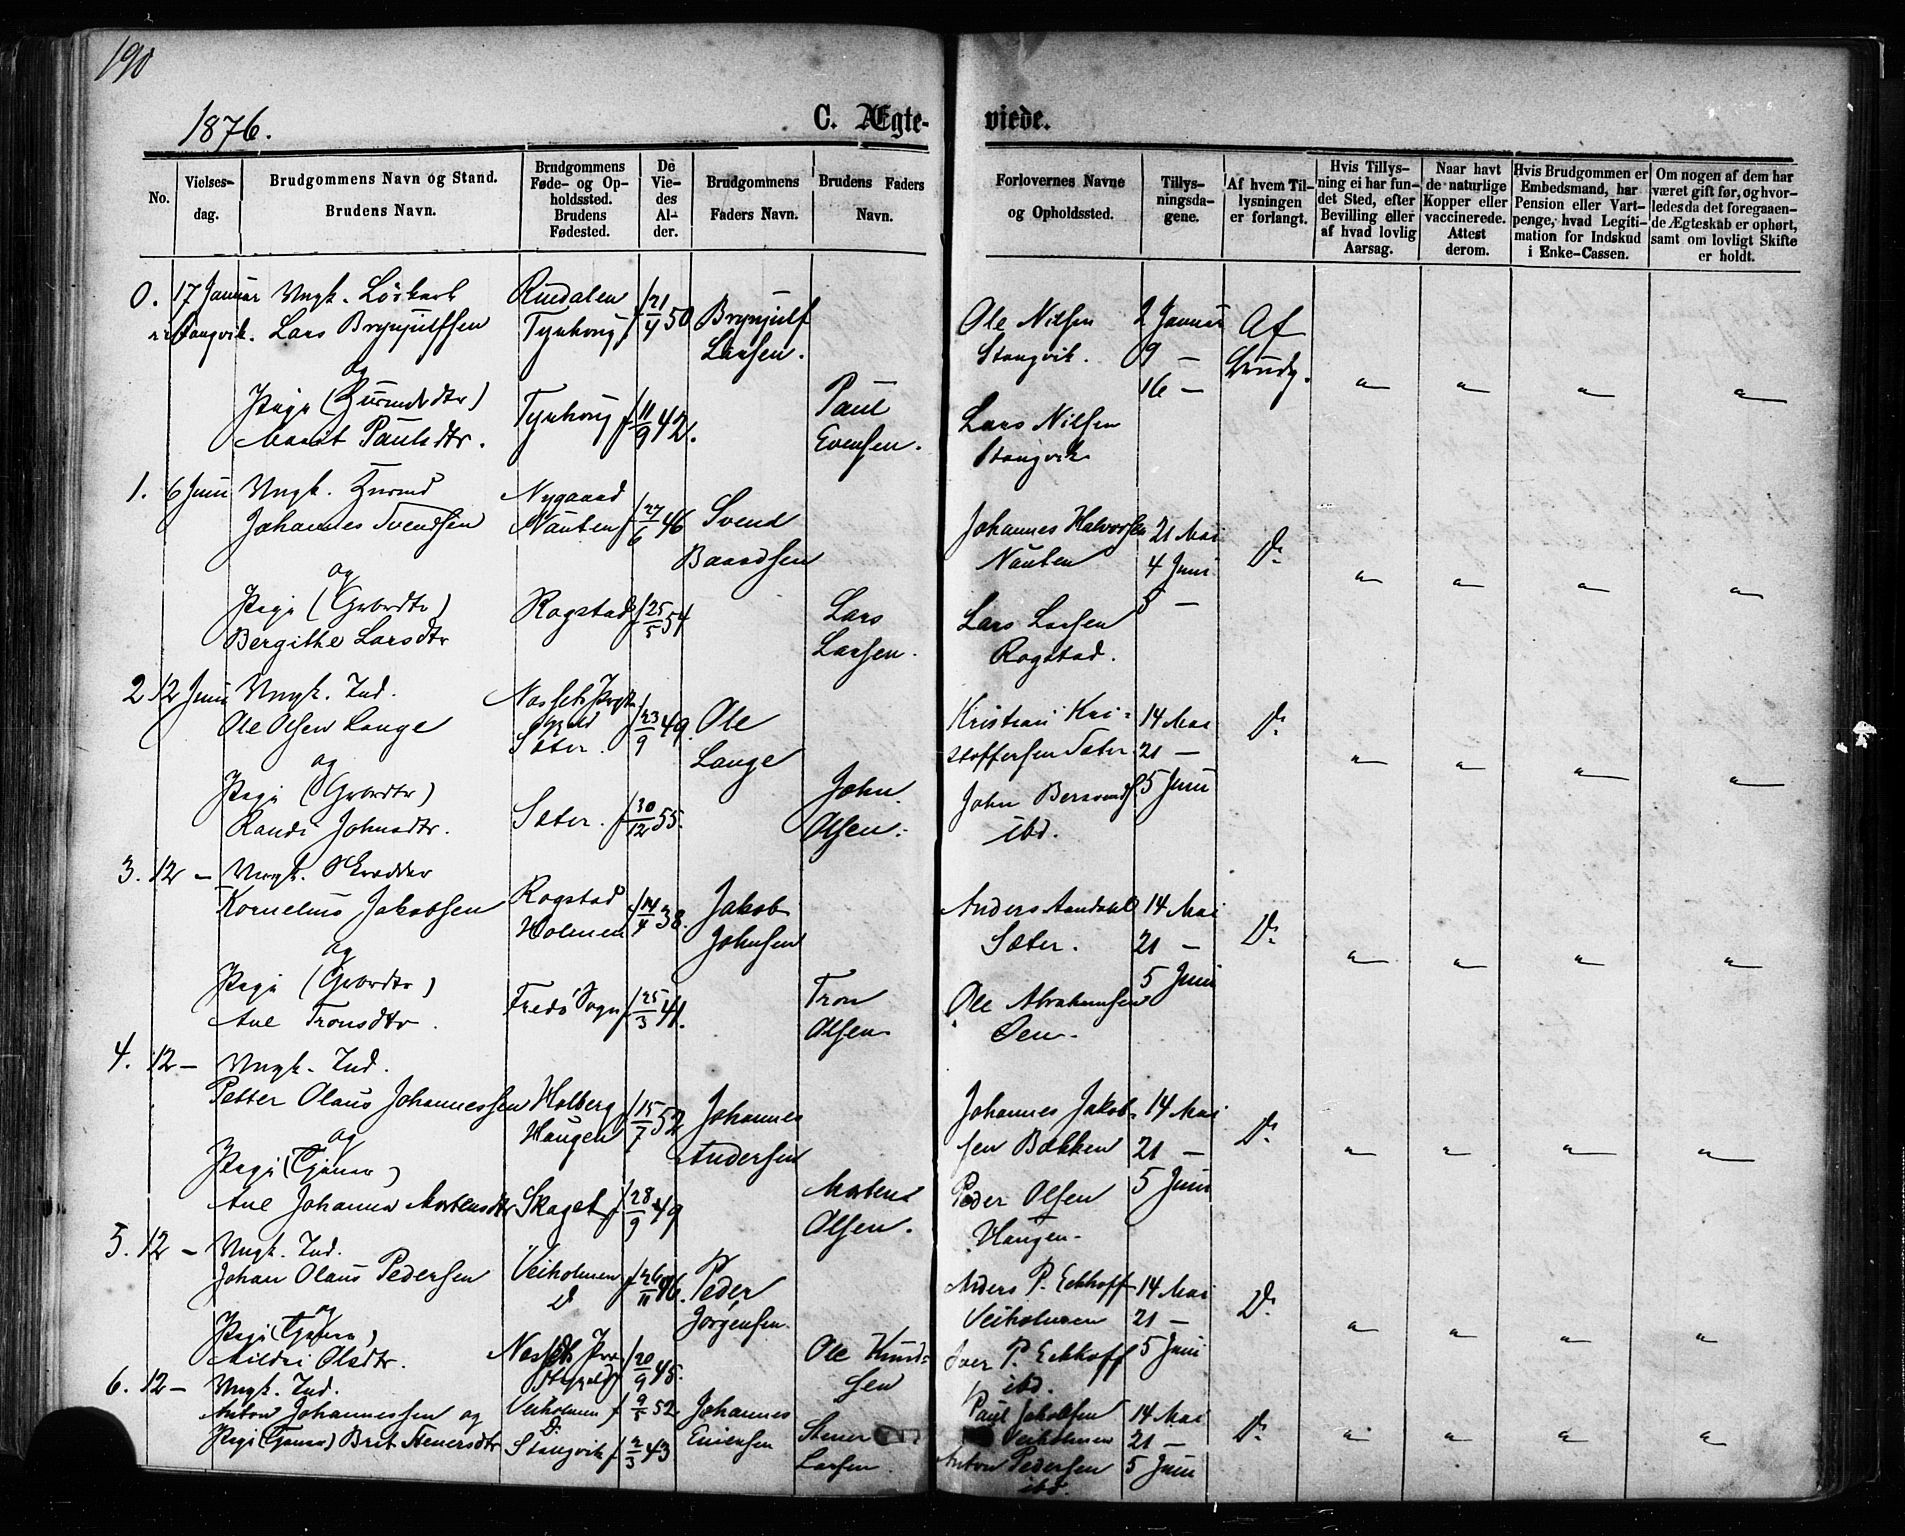 190
1876.
C. Ægte-
viede.
No.
Vielses-
dag.
Brudgommens Navn og Stand.
Brudens Navn.
Brudgommens
Føde- og Op-
holdssted.
Brudens
Fødested.
De
Vie-
des
Al-
der.
Brudgommens
Faders Navn.
Brudens Faders
Navn.
Forlovernes Navne
og Opholdssted.
Tillys-
ningsda-
gene.
Af hvem Til-
lysningen
er forlangt.
Hvis Tillys-
ning ei har fun-
det Sted, efter
Bevilling eller
af hvad lovlig
Aarsag.
Naar havt
de naturlige
Kopper eller
vaccinerede.
Attest
derom.
Hvis Brudgommen er
Embedsmand, har
Pension eller Vart-
penge, hvad Legiti-
mation for Indskud
i Enke-Cassen.
Om nogen af dem har
været gift før, og hvor-
ledes da det foregaaen-
de Ægteskab er ophørt,
samt om lovligt Skifte
er holdt.
0. 17 Januar Ungk. Løskarl Rindalen 21/4 50 Brynjulf Ole Nilsen 2 Januar Af
Stangvik. Lars Brynjulfsen Tynhoug Larsen. Stangvik. 9 — Brudg.
og 16 —
Pige (Gaardmdtr) Tynhoug f 11/9 42. Paul Lars Nilsen
Marit Paulsdtr. Evensen. Stangvik
1. 6 Juni Ungk. Nygaard f 27/6 46 Svend Johannes Halvorsen 21 Mai Do
Johannes Svendsen Nauten Baardsen Nauten 4 Juni
og 5 —
Pige (Grbrdtr) Rogstad f 25/5 54 Lars Lars Larsen
Bergithe Larsdtr Larsen. Rogstad.
2 12 Juni Ungk. Ind. Nossets Prgld f 23/9 49. Ole Kristian Kri- 14 Mai Do
Ole Olsen Lange Sæter. Lange stoffersen Sæter. 21 —
og 5 Juni
Pige (Grbrdtr) Sæter. f 30/12 55. John John
Randi Johnsdtr. Olsen. ibd.
3. 12 — Ungk. Skrædder Rogstad f 14/4 38. Jakob Anders Aandahl 14 Mai Do
Kornelius Jakobsen Holmen Johnsen Sæter. 21 —
og 5 Juni
Pige (Grbrdtr) Fredø Sogn f 25/3 41. Tron Ole Abrahamsen
Ane Tronsdtr. Olsen Øen.
4. 12 — Ungk. Ind. Holberg f 15/7 52 Johannes Johannes Jakob- 14 Mai Do
Petter Olaus Johannessen Haugen Andersen sen Bækken 21 —
og 5 Juni
Pige (Tjener) Skaget f 28/9 49 Morten Peder Olsen
Ane Johanna Mortensdtr Olsen. Haugen.
5. 12 — Ungk. Ind. Veiholmen f 26/11 46. Peder Anders P. Eckhoff 14 Mai Do
Johan Olaus Pedersen Jørgensen. Veiholmen 21 —
og 5 Juni
Pige (Tjener) f 20/9 45. Ole Knud- Iver P. Eckhoff
Mildri Olsdtr. sen ibd.
6. 12 — Ungk. Ind. Veiholmen f 9/5 52 Johannes Paul Jakobsen 14 Mai Do
Anton Johannessen og Eniersen Veiholmen 21 —
Pige (Tjener) Brit Steuersdtr Stangvik f 2/3 43 Steuer Larsen. Anton Pedersen 5 Juni
ibd.